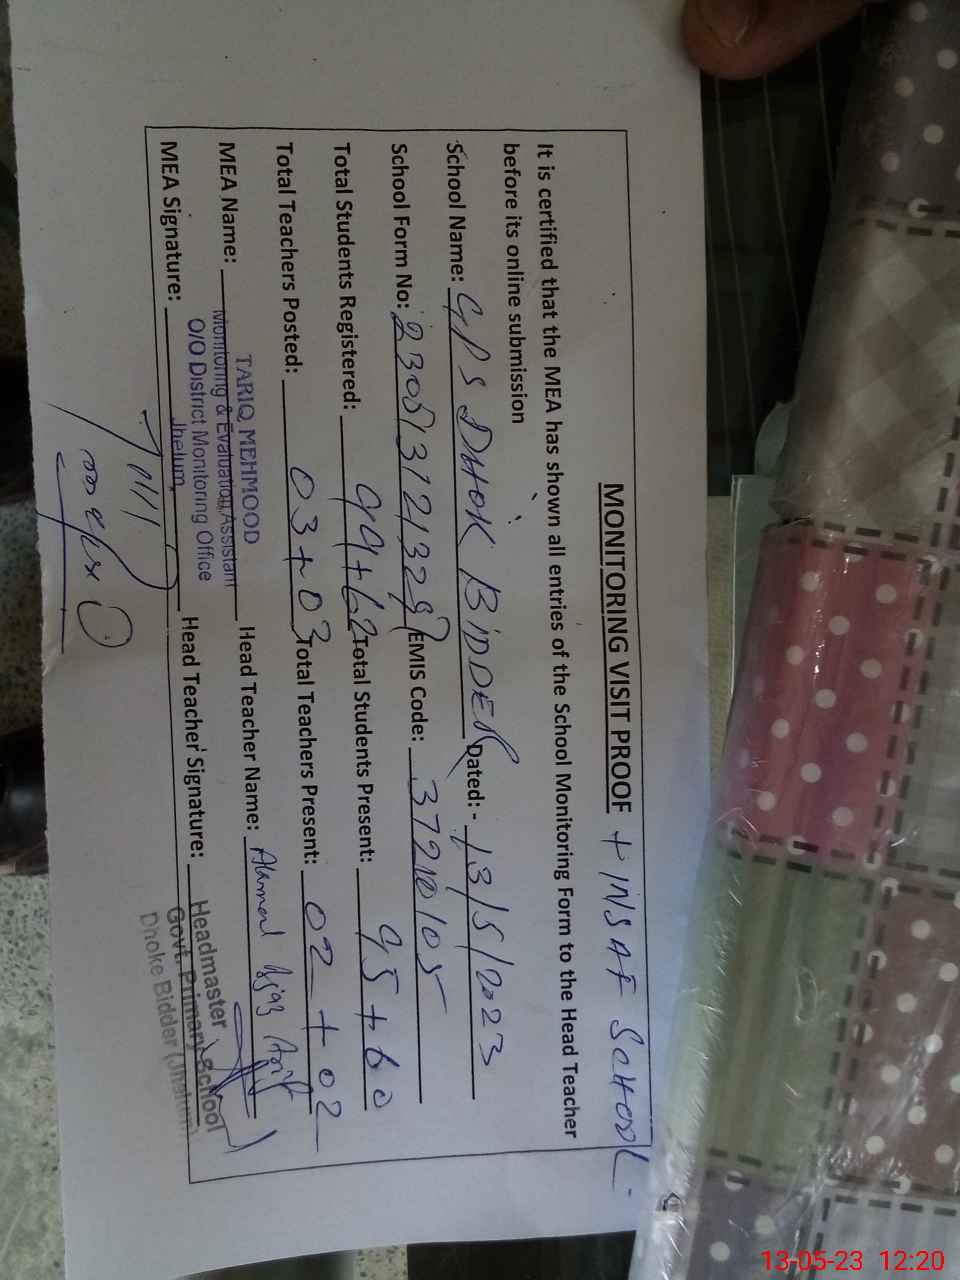 MONITORING VISIT PROOF + INSAF SCHOOL
It is certified that the MEA has shown all entries of the School Monitoring Form to the Head Teacher
before its online submission
School Name: GPS DHOK BIDDER Dated:- 13/5/2023
School Form No: EMIS Code: 37210105
Total Students Registered: 99+62 Total Students Present: 95+60
Total Teachers Posted: 03+03 Total Teachers Present: 02+02
MEA Name: TARIQ MEHMOOD Head Teacher Name: Ahmed
Monitoring & Evaluation Assistant
O/O District Monitoring Office
Jhelum
MEA Signature: Head Teacher Signature: Headmaster
Govt. Primary School
Dhoke Bidder (Jhelum)
13-05-23 12:20